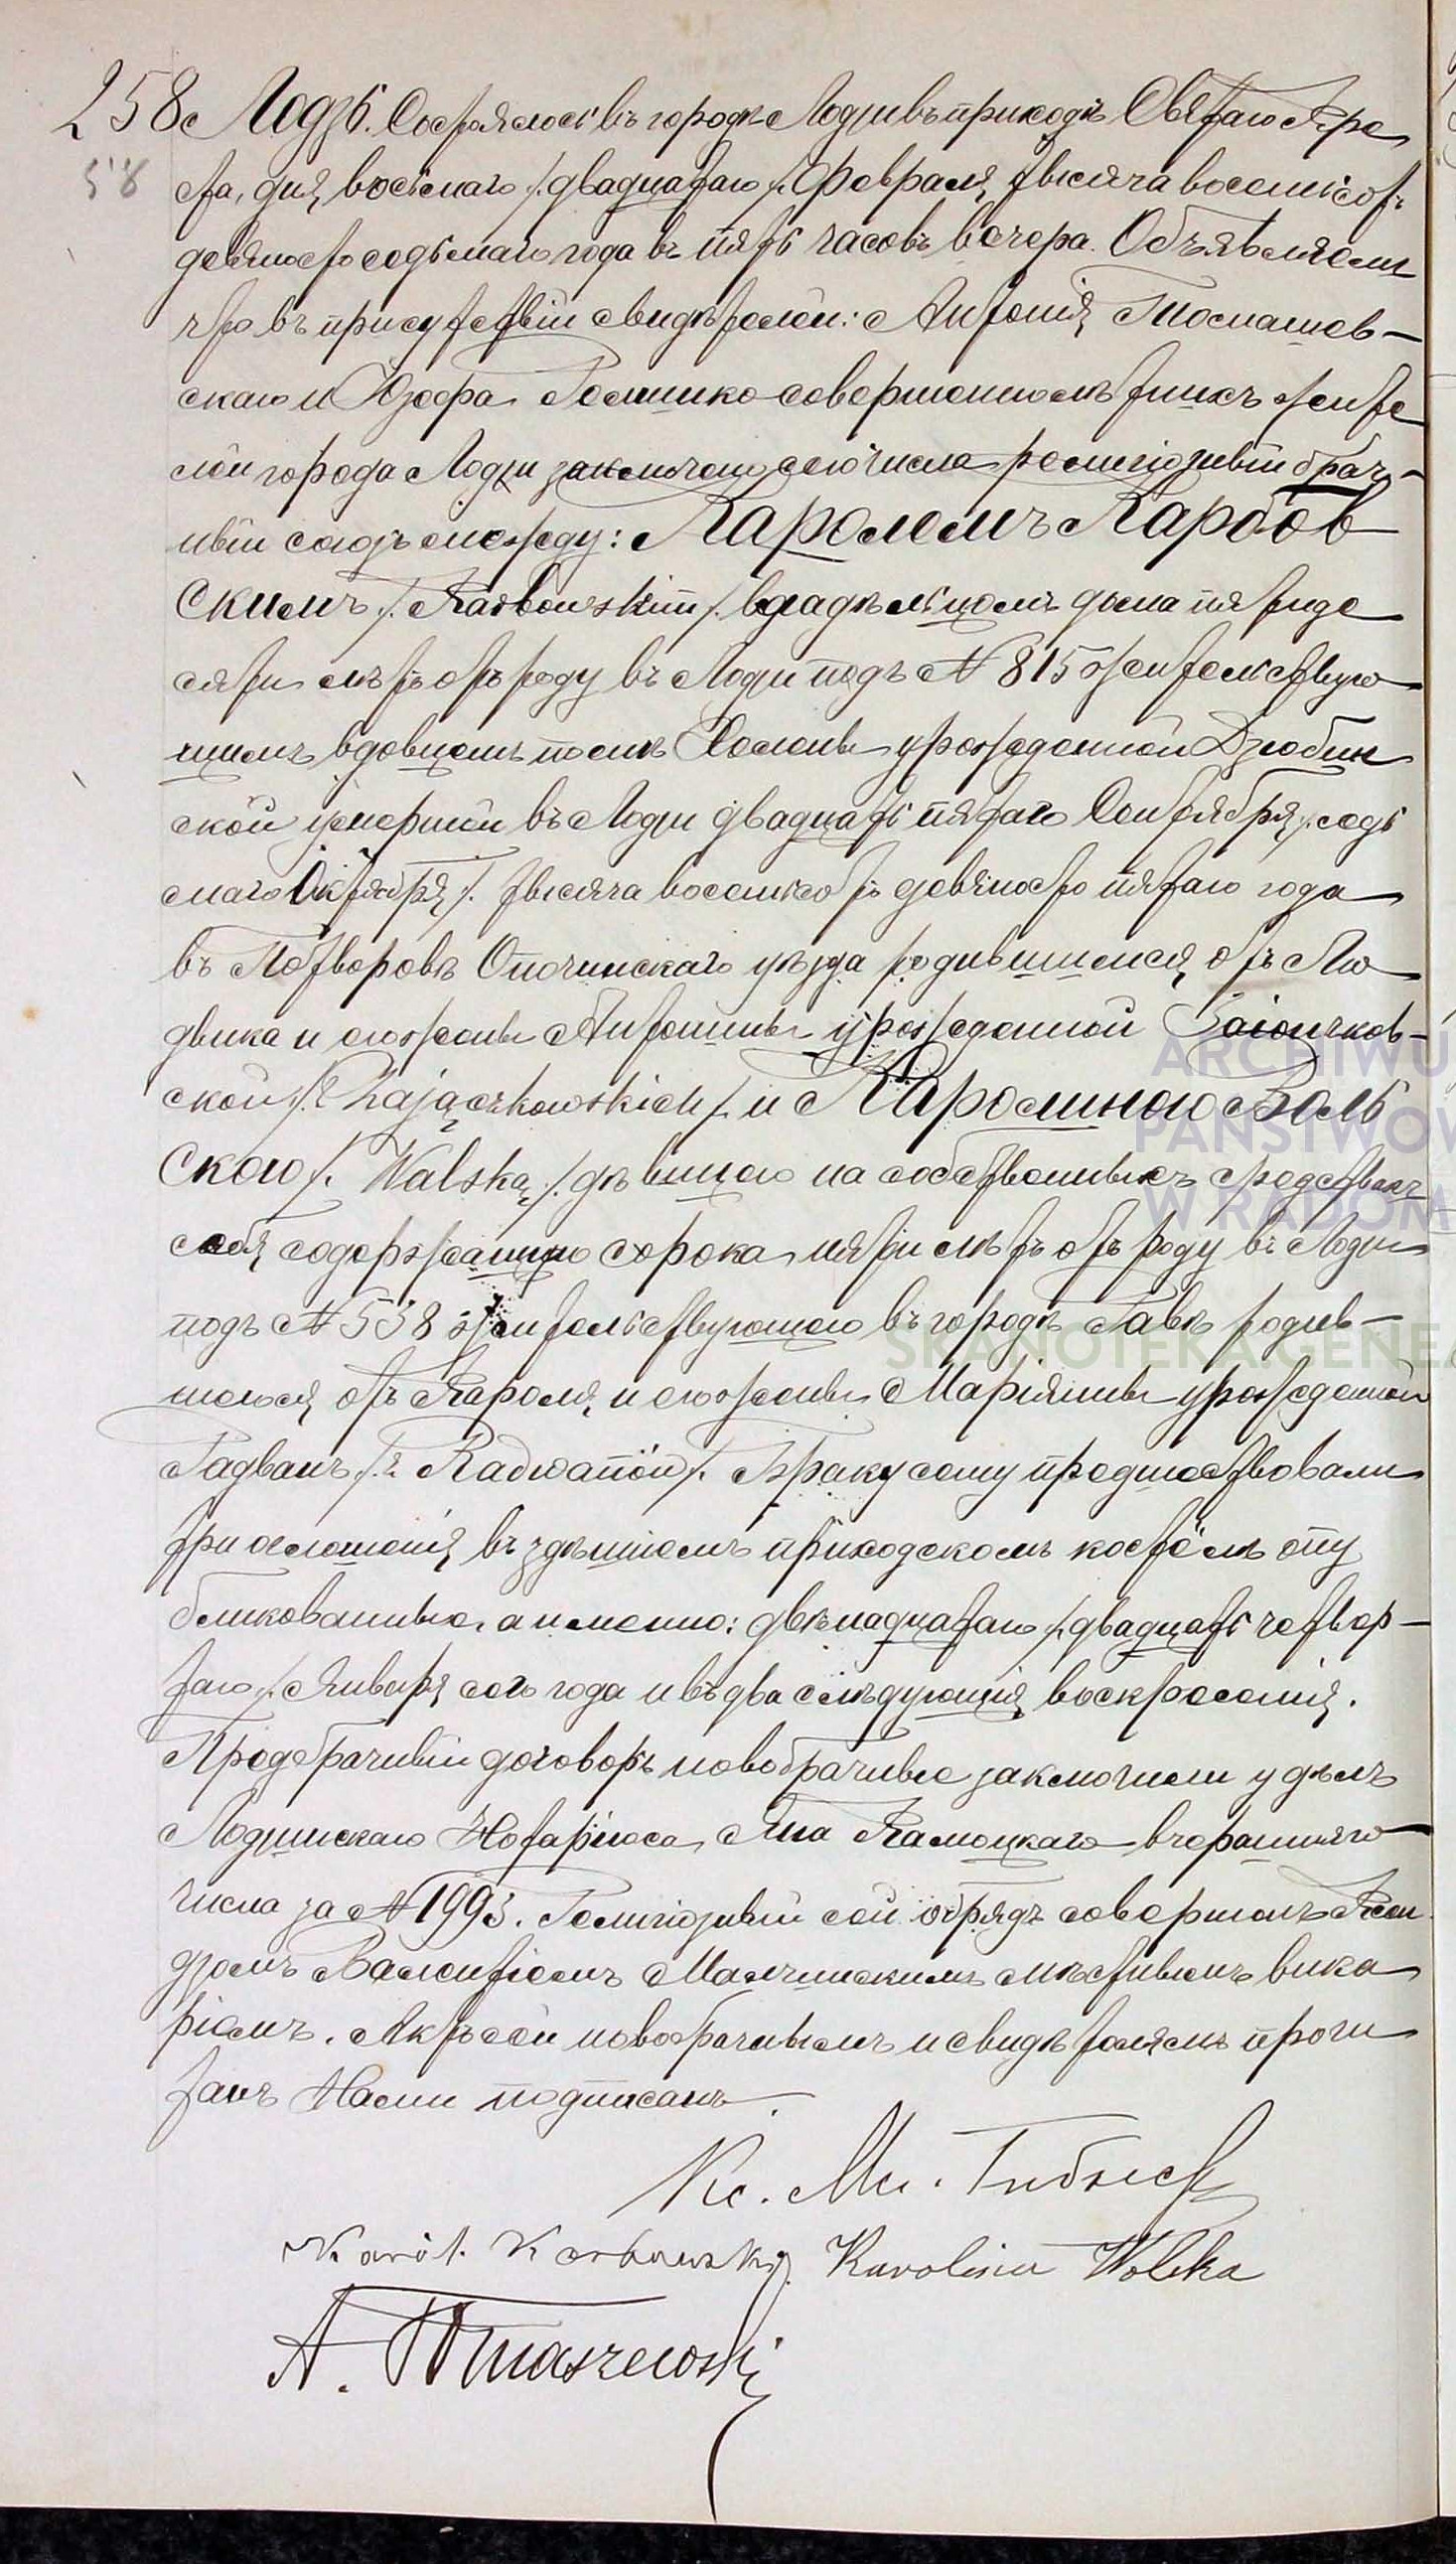 258 Лодзь. Состоялось въ городѣ Лодзи въ приходѣ Святаго Кре
58
ста, дня восьмаго /:двадцатаго/: Февраля тысяча восемьсотъ
девяносто седьмаго года въ пять часовъ вечера. Объявляемъ
что въ присутствіи свидѣтелей: Антонія Томашев-
скаго и Юзефа совершеннолѣтнихъ жите
лей города Лодзи заключенъ сего числа религіозный брач-
ный союзъ между: Каролемъ Карбов
скимъ /:Karbowskim/: владѣльцомъ дома пятиде
сяти лѣтъ отъ роду въ Лодзи подъ N 815 жительствую
щимъ вдовцемъ послѣ Хелены урожденной Дзюбин
ской умершей въ Лодзи двадцать пятаго Сентября /:седь
маго Октября/: тысяча восемьсотъ девяносто пятаго года
въ Потворовѣ Опочинскаго уѣзда родившимся отъ Лю
двика и его жены Антонины урожденной Заіончков-
ской /:z Zajączkowskich/: и Каролиною Валь
скою /:Walską/: дѣвицею на собственныхъ средствахъ
себя содержащею сорока пяти лѣтъ отъ роду въ Лодзи
подъ N 538 жительствующею въ городѣ Равѣ родив-
шеюся отъ Кароля и его жены Маріянны урожденной
Радванъ /:z Radwanów/: Браку сему предшествовали
три оглашенія въ здѣшнемъ приходскомъ костёлѣ опу
бликованные, а именно: двѣнадцатаго /:двадцать четвер-
таго/: Января сего года и въ два слѣдующія воскресенія.
Предбрачный договоръ новобрачные заключили у дѣлъ
Лодзинскаго Нотаріюса Яна Камоцкаго вчерашняго
числа за N 1993. Религіозный сей обрядъ совершенъ Ксен
дзомъ Валентіемъ Малчинскимъ мѣстнымъ вика
ріемъ. Актъ сей новобрачнымъ и свидѣтелямъ прочи
танъ Нами подписанъ.
Кс.
Karól. Karbowski. Karolina Wolska
A. Tomaszewski
ARCHIWU
PAŃSTWOW
W RADOM
SKANOTEKA.GENEA